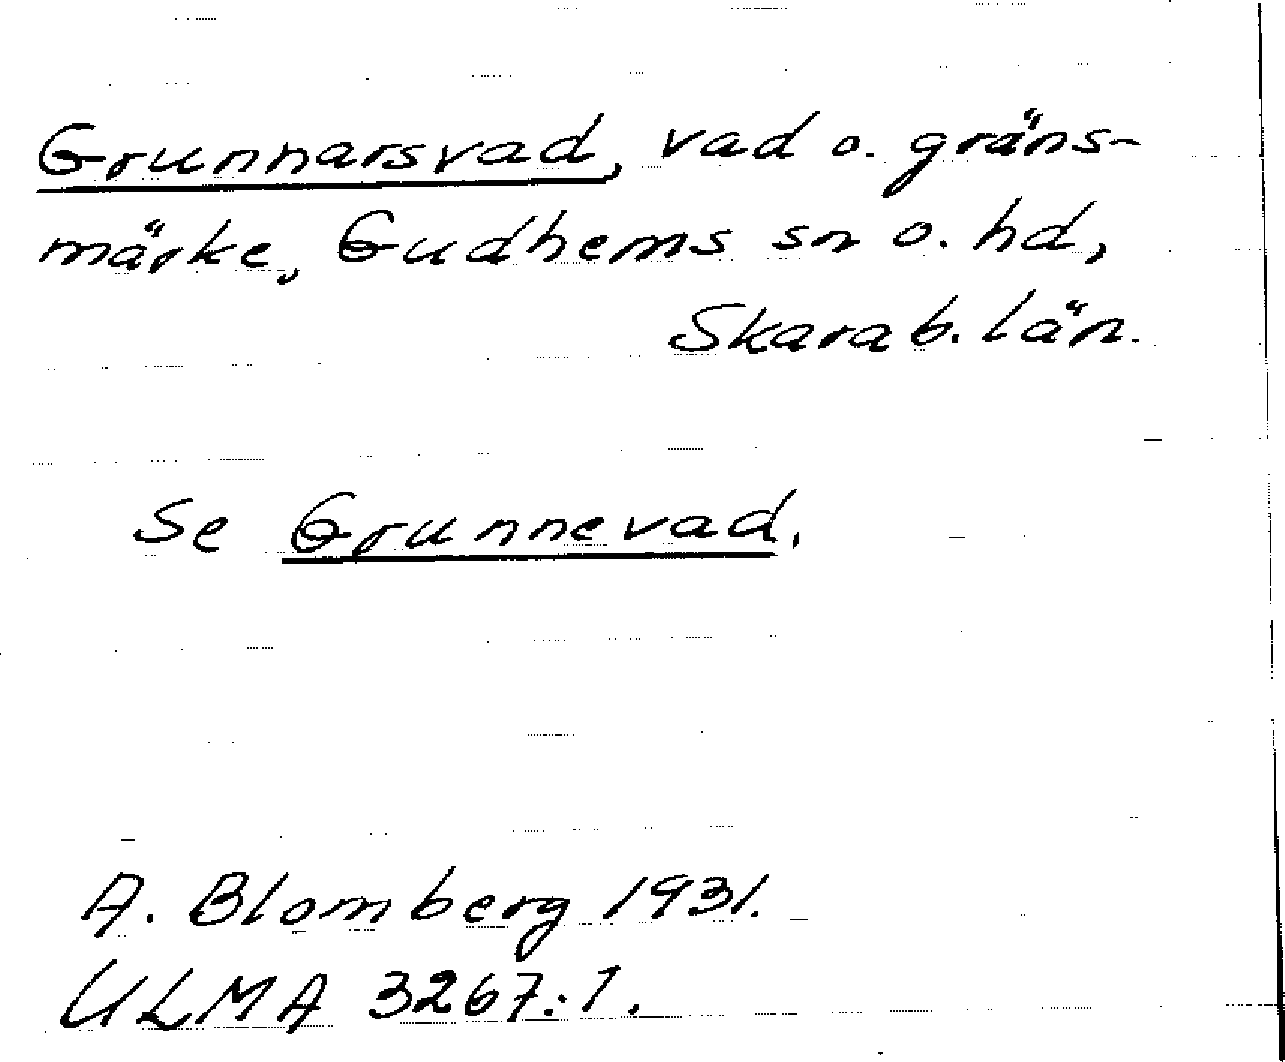 Grunnarsvad, vad o. gräns-
märke, Gudhems sn o. hd,
Skarab. län.
Se Grunnevad.
A. Blomberg 1931.
ULMA 3267:1.